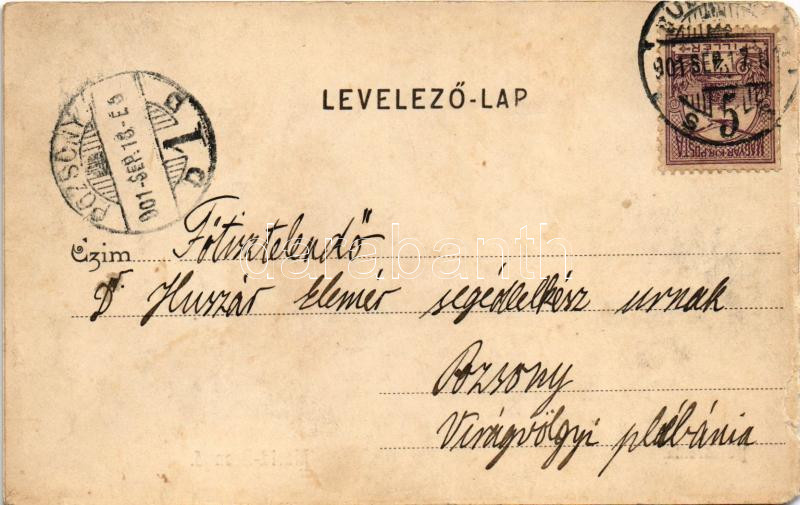 LEVELEZŐ-LAP
POZSONY
901-SEP.18-E9
901 SEP.17
5
MAGYAR KIR. POSTA
Czim Főtisztelendő
Dr. Huszár Elemér segédlelkész urnak
Pozsony
Virágvölgyi plébánia
darabanth